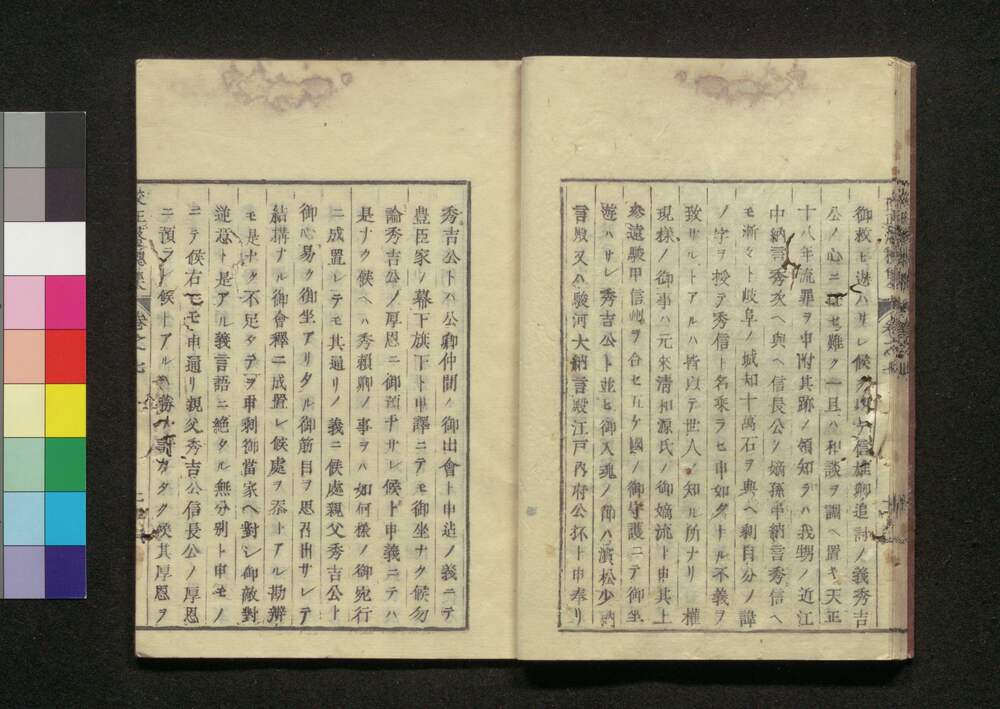 御救ヒ遊ハサレ候ク内ケ信雄卿追討ノ義秀吉
公ノ心ニ任セ難ク一旦ハ和談ヲ調ヘ置キ天正
十八年流罪ヲ申附其跡ノ領知ヲハ我甥ノ近江
中納言秀次ヘ與ヘ信長公ノ嫡孫中納言秀信ヘ
モ漸々ト岐阜ノ城知十萬石ヲ與ヘ剰自分ノ諱
ノ字ヲ授テ秀信ト名乘ラセ申如クトルル不義ヲ
致サルトアルハ皆以テ世人ノ知ル所ナリ 權
現様ノ御事ハ元來清和源氏ノ御嫡流ト申其上
参遠駿甲信五州ヲ合セ五ケ國ノ御守護ニテ御坐
遊ハサレ秀吉公ト並ヒ御入魂ノ節ハ濱松少納
言殿又ハ駿河大納言殿江戸内府公抔ト申奉リ
秀吉公トハ公卿仲間ノ御出會ト申迠ノ義ニテ
豊臣家ノ幕下旗下ト申譯ニテモ御坐ナク候勿
論秀吉公ノ厚恩ニ御預ナサレ候ト申義ニテハ
是ナク候ヘハ秀頼卿ノ事ヲハ如何様ノ御宛行
ニ成置レテモ其通リノ義ニ候處親父秀吉公ト
御心易ク御坐アリタル御筋目ヲ思召出サレテ
結構ナル御會釋ニ成置レ候處ヲ忝トアル勘辨
モ是ナク不足タテヲ申剰御當家ヘ對シ御敵對
逆意ト是アル義言語ニ絶タル無分別ト申モノ
ニテ候右ニモ申通リ親父秀吉公信長公ノ厚恩
ニ預ラレ候トアルハ勝ケ計カタク候其厚恩ヲ
卷之七